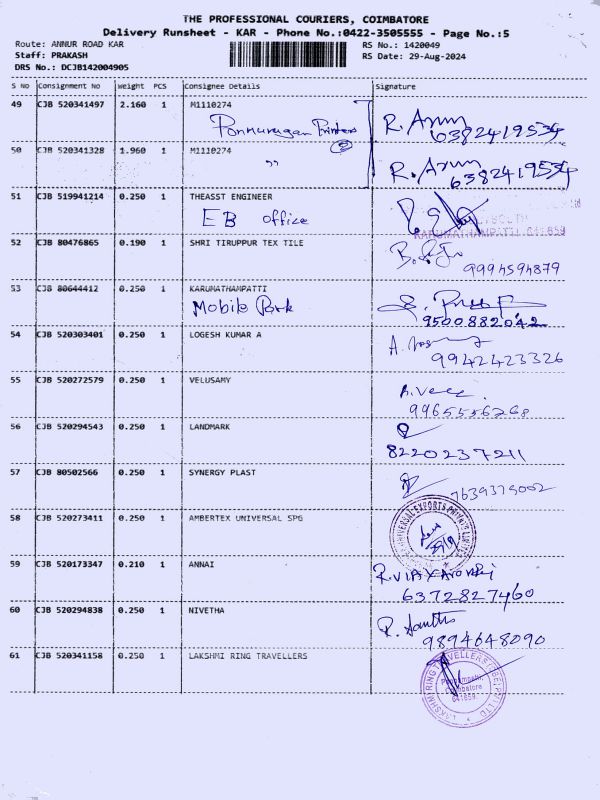 THE PROFESSIONAL COURIERS, COIMBATORE
Delivery Runsheet - KAR - Phone No.:0422-3505555 - Page No.:5
Route: ANNUR ROAD KAR
Staff: PRAKASH
DRS No.: DCJB142004905
RS No.: 1420049
RS Date: 29-Aug-2024
S No Consignment No Weight PCS Consignee Details Signature
49 CJB 520341497 2.160 1 M1110274
Ponnurugan Printers R. Arun
6382419534
50 CJB 520341328 1.960 1 M1110274
" R. Arun
6382419534
51 CJB 519941214 0.250 1 THEASST ENGINEER
EB office
KARUMATHAMPATTI 641659
52 CJB 80476865 0.190 1 SHRI TIRUPPUR TEX TILE
9994594879
53 CJB 80644412 0.250 1 KARUMATHAMPATTI
Mobile Park
9500882042
54 CJB 520303401 0.250 1 LOGESH KUMAR A
9942423326
55 CJB 520272579 0.250 1 VELUSAMY
9965556268
56 CJB 520294543 0.250 1 LANDMARK
8220237211
57 CJB 80502566 0.250 1 SYNERGY PLAST
7639375002
58 CJB 520273411 0.250 1 AMBERTEX UNIVERSAL SPG
UNIVERSAL EXPORTS PRIVATE LIMITED
59 CJB 520173347 0.210 1 ANNAI
6372827460
60 CJB 520294838 0.250 1 NIVETHA
9894648090
61 CJB 520341158 0.250 1 LAKSHMI RING TRAVELLERS
LAKSHMI RING TRAVELLERS
Coimbatore
641659